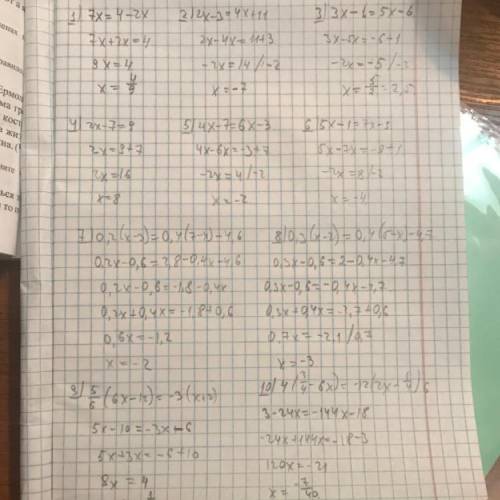 1) 7x=4-2x
7x+2x=4
9x=4
x=4/9
2) 2x-3=4x+11
2x-4x=11+3
-2x=14 /-2
x=-7
3) 3x-6=5x-6
3x-5x=-6+1
-2x=-5 /-2
x=5/2=2,5
4) 2x-7=9
2x=9+7
2x=16
x=8
5) 4x-7=6x-3
4x-6x=-3+7
-2x=4 /-2
x=-2
6) 5x-1=7x-
5x-7x= +1
-2x=8 /-2
x=-4
7) 0,2(x-3)=0,4(7-x)-4,6
0,2x-0,6=2,8-0,4x-4,6
0,2x-0,6=-1,8-0,4x
0,2x+0,4x=-1,8+0,6
0,6x=-1,2
x=-2
8) 0,3(x-2)=0,4(5-x)-4,7
0,3x-0,6=2-0,4x-4,7
0,3x-0,6=-0,4x-2,7
0,3x+0,4x=-2,7+0,6
0,7x=-2,1 /0,7
x=-3
9) 5/6(6x-12)=-3(x+2)
5x-10=-3x-6
5x+3x=-6+10
8x=4
10) 4(3/4-6x)=-12(2x-
3-24x=-144x-18
-24x+144x=-18-3
120x=-21
x=-7/40